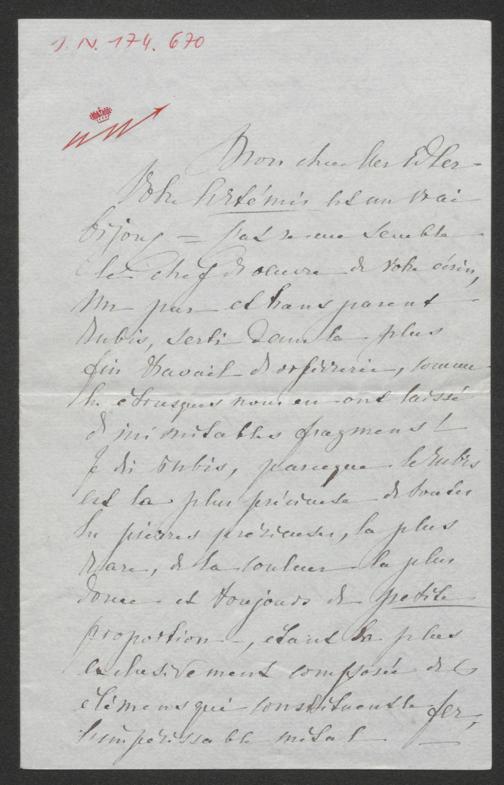 I. N. 174. 670
Mon cher Her Adler -
Votre Artémis est un vrai
bijou = Ça me semble
le chef d'oeuvre de votre écrin,
Un pur et transparent
Rubis, serti dans le plus
fin travail d'orfèvrerie, comme
les étrusques nous en ont laissé
d'inimitables fragments!
Je dis rubis, parceque le Rubis
est la plus précieuse de toutes
les pierres précieuses, la plus
rare, de la couleur la plus
douce et toujours de petite
proportion, étant la plus
exclusivement composée de
élémens qui constituent le fer,
l'impérissable métal -